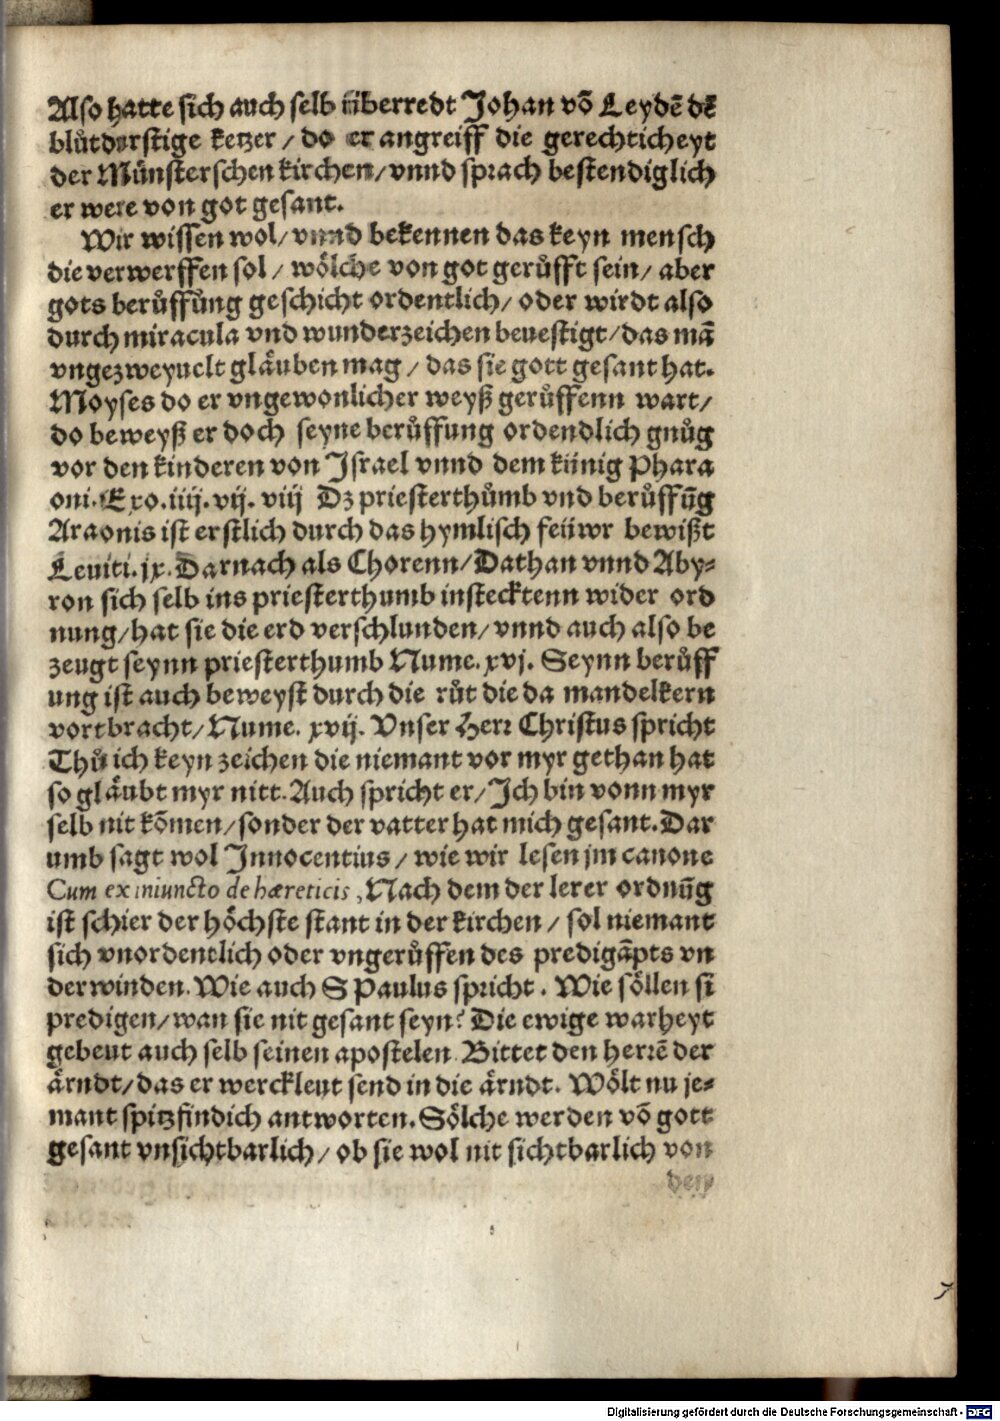 Also hatte sich auch selb überredt Johan võ Leydẽ dẽ
blůtdorstige ketzer / do er angreiff die gerechticheyt
der Můnsterschen kirchen / vnnd sprach bestendiglich
er were von got gesant.
Wir wissen wol / vnnd bekennen das keyn mensch
die verwerffen sol / wölche von got gerůfft sein / aber
gots berůffůng geschicht ordentlich / oder wirdt also
durch miracula vnd wunderzeichen beuestigt / das mã
vngezweyuelt gläuben mag / das sie gott gesant hat.
Moyses do er vngewonlicher weyß gerůffenn wart /
do beweyß er doch seyne berůffung ordendlich gnůg
vor den kinderen von Israel vnnd dem künig Phara
oni. Exo. iiij. vij. viij Dz priesterthůmb vnd berůffũg
Araonis ist erstlich durch das hymlisch feüwr bewißt
Leuiti. jx. Darnach als Chorenn / Dathan vnnd Aby⸗
ron sich selb ins priesterthumb instecktenn wider ord
nung / hat sie die erd verschlunden / vnnd auch also be
zeugt seynn priesterthumb Nume. xvj. Seynn berůff
ung ist auch beweyst durch die růt die da mandelkern
vortbracht / Nume. xvij. Vnser Herr Christus spricht
Thů ich keyn zeichen die niemant vor myr gethan hat
so gläubt myr nitt. Auch spricht er / Ich bin vonn myr
selb nit kõmen / sonder der vatter hat mich gesant. Dar
umb sagt wol Innocentius / wie wir lesen jm canone
Cum ex iniuncto de hæreticis, Nach dem der lerer ordnũg
ist schier der höchste stant in der kirchen / sol niemant
sich vnordentlich oder vngerůffen des predigãpts vn
derwinden. Wie auch S Paulus spricht. Wie söllen si
predigen / wan sie nit gesant seyn? Die ewige warheyt
gebeut auch selb seinen apostelen. Bittet den herrẽ der
ärndt / das er werckleut send in die ärndt. Wölt nu je⸗
mant spitzfindich antworten. Sölche werden võ gott
gesant vnsichtbarlich / ob sie wol nit sichtbarlich von
den
7
Digitalisierung gefördert durch die Deutsche Forschungsgemeinschaft - DFG